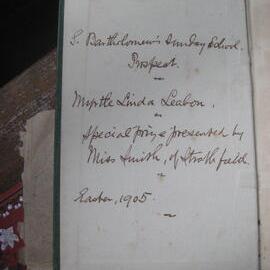 S. Bartholomew's Sunday School.
Prospect.
Myrtle Linda Leabon.
Special prize presented by
Miss Smith, of Strathfield.
Easter, 1905.